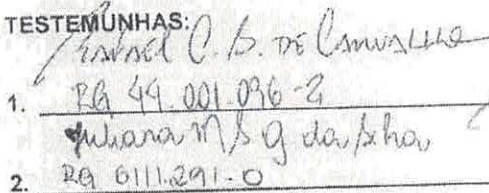 TESTEMUNHAS:
Rafael C. S. DE CARVALHO
1. RG 44.001.096-2
Juliana M S G da Silva
2. RG 6111.291-0